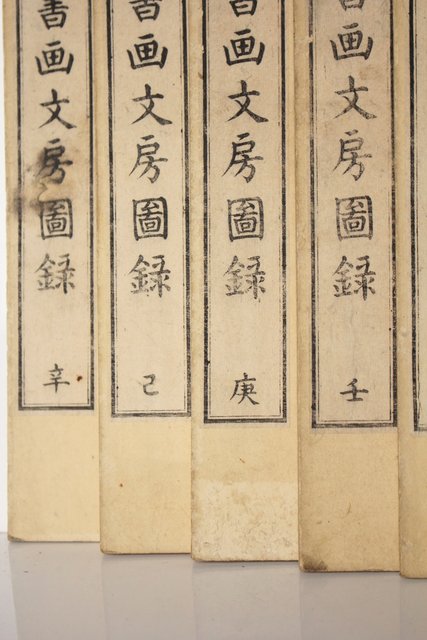 書画文房圖録 壬
書画文房圖録 庚
書画文房圖録 己
書画文房圖録 辛